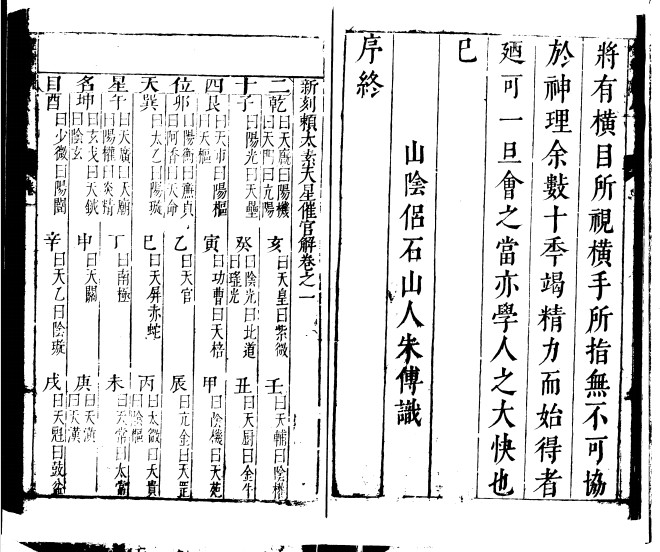 將有橫目所視橫手所指無不可協
於神理余數十秊竭精力而始得者
廼可一旦會之當亦學人之大快也
已
山陰侶石山人朱傅識
序終
新刻賴太素天星催官解卷之一
二 乾 曰天廐曰陽機 曰天門曰亢陽 亥 曰天皇曰紫微 壬 曰天輔曰陰權
十 子 曰陽光曰天壘 癸 曰陰光曰北道 曰瑤光 丑 曰天厨曰金牛
四 艮 曰天市曰陽樞 曰天樞 寅 曰功曹曰天棓 甲 曰陰機曰天苑
位 卯 曰陽衡曰廉貞 曰阿香曰天命 乙 曰天官 辰 曰亢金曰天罡
天 巽 曰太乙曰陽璇 巳 曰天屏赤蛇 丙 曰太微曰天貴 曰陰樞
星 午 曰天廣曰天廟 曰陽權曰炎精 丁 曰南極 未 曰天常曰太常
名 坤 曰玄戈曰天鉞 曰陰玄 申 曰天關 庚 曰天潢 曰天漢
目 酉 曰少微曰陽闓 辛 曰天乙曰陰璇 戌 曰天魁曰鼓盆